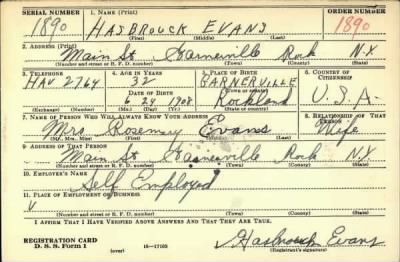 SERIAL NUMBER 1. NAME (Print) ORDER NUMBER
1890 HASBROUCK EVANS 1890
(First) (Middle) (Last)
2. ADDRESS (Print)
Main St Garnerville Rock N.Y.
(Number and street or R. F. D. number) (Town) (County) (State)
3. TELEPHONE 4. AGE IN YEARS 5. PLACE OF BIRTH 6. COUNTRY OF CITIZENSHIP
HAV 2764 32 GARNERVILLE
DATE OF BIRTH (Town or county)
6 24 1908 Rockland U.S.A.
(Exchange) (Number) (Mo.) (Day) (Yr.) (State or country)
7. NAME OF PERSON WHO WILL ALWAYS KNOW YOUR ADDRESS 8. RELATIONSHIP OF THAT PERSON
Mrs. Rosemary Evans Wife
(Mr., Mrs., Miss) (First) (Middle) (Last)
9. ADDRESS OF THAT PERSON
Main St Garnerville Rock N.Y.
(Number and street or R. F. D. number) (Town) (County) (State)
10. EMPLOYER'S NAME
Self Employed
11. PLACE OF EMPLOYMENT OR BUSINESS
V
(Number and street or R. F. D. number) (Town) (County) (State)
I AFFIRM THAT I HAVE VERIFIED ABOVE ANSWERS AND THAT THEY ARE TRUE.
REGISTRATION CARD
D. S. S. Form 1 (over) 16—17105 Hasbrouck Evans
(Registrant's signature)